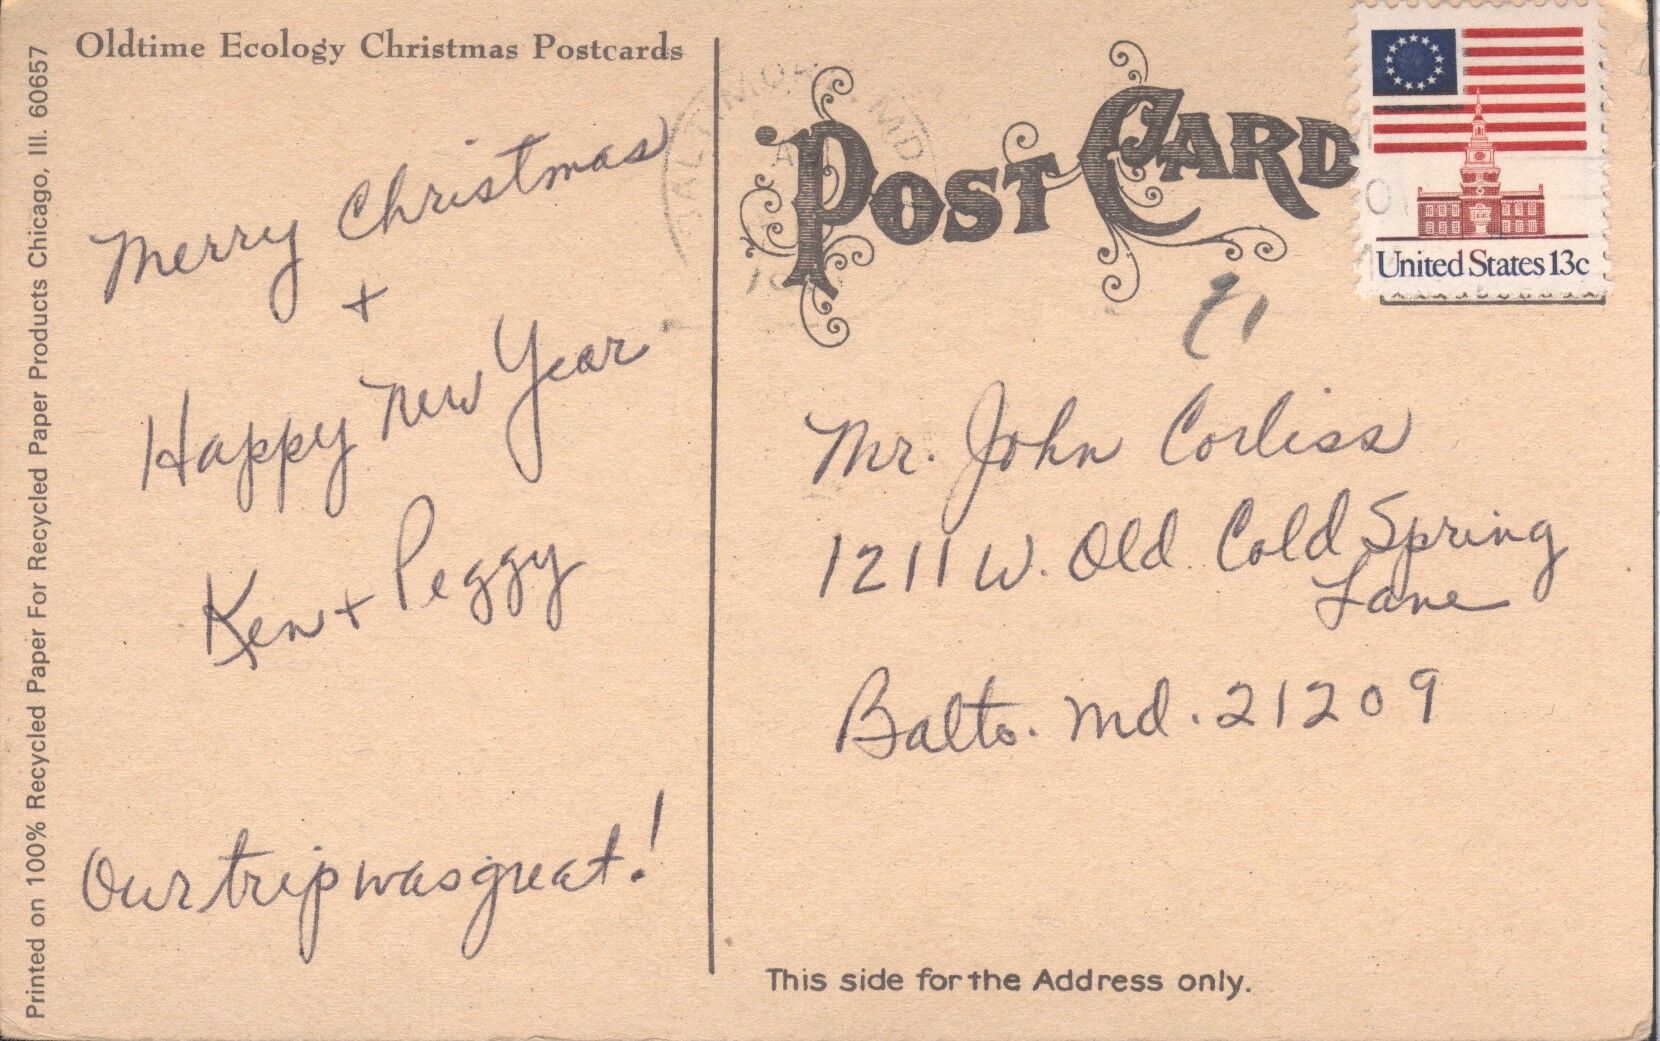 Oldtime Ecology Christmas Postcards
Printed on 100% Recycled Paper For Recycled Paper Products Chicago, Ill. 60657
Merry Christmas
+
Happy New Year
Ken + Peggy
Our trip was great!
POST CARD
BALTIMORE, MD
AM
United States 13c
Mr. John Corliss
1211 W. Old Cold Spring
Lane
Balto. Md. 21209
This side for the Address only.